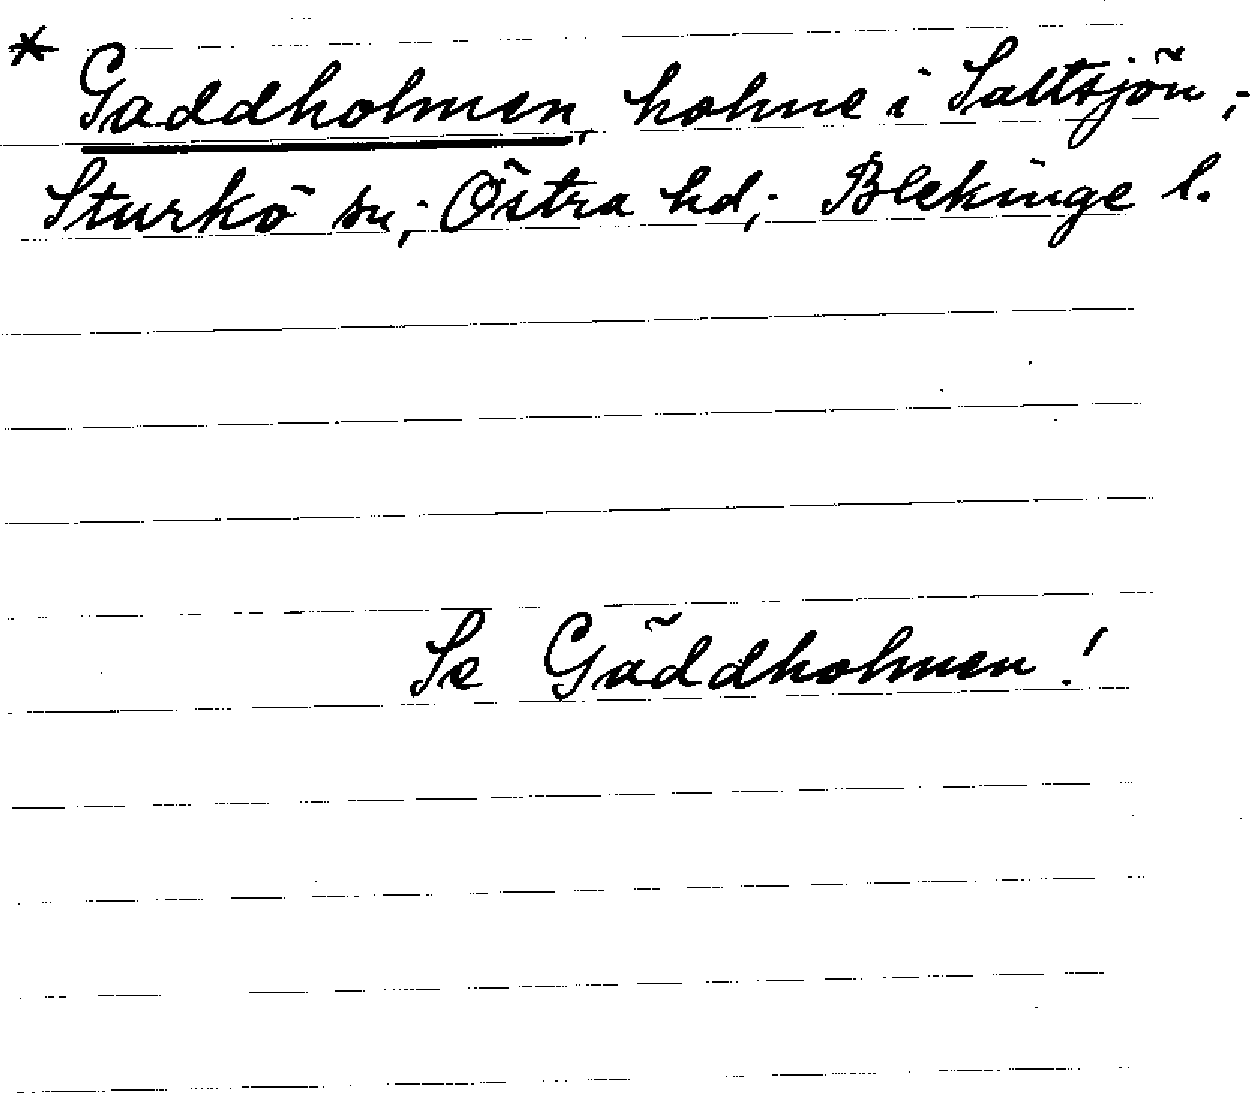 * Gaddholmen, holme i Saltsjön,-
Sturkö sn,- Östra hd,- Blekinge l.
Se Gäddholmen!